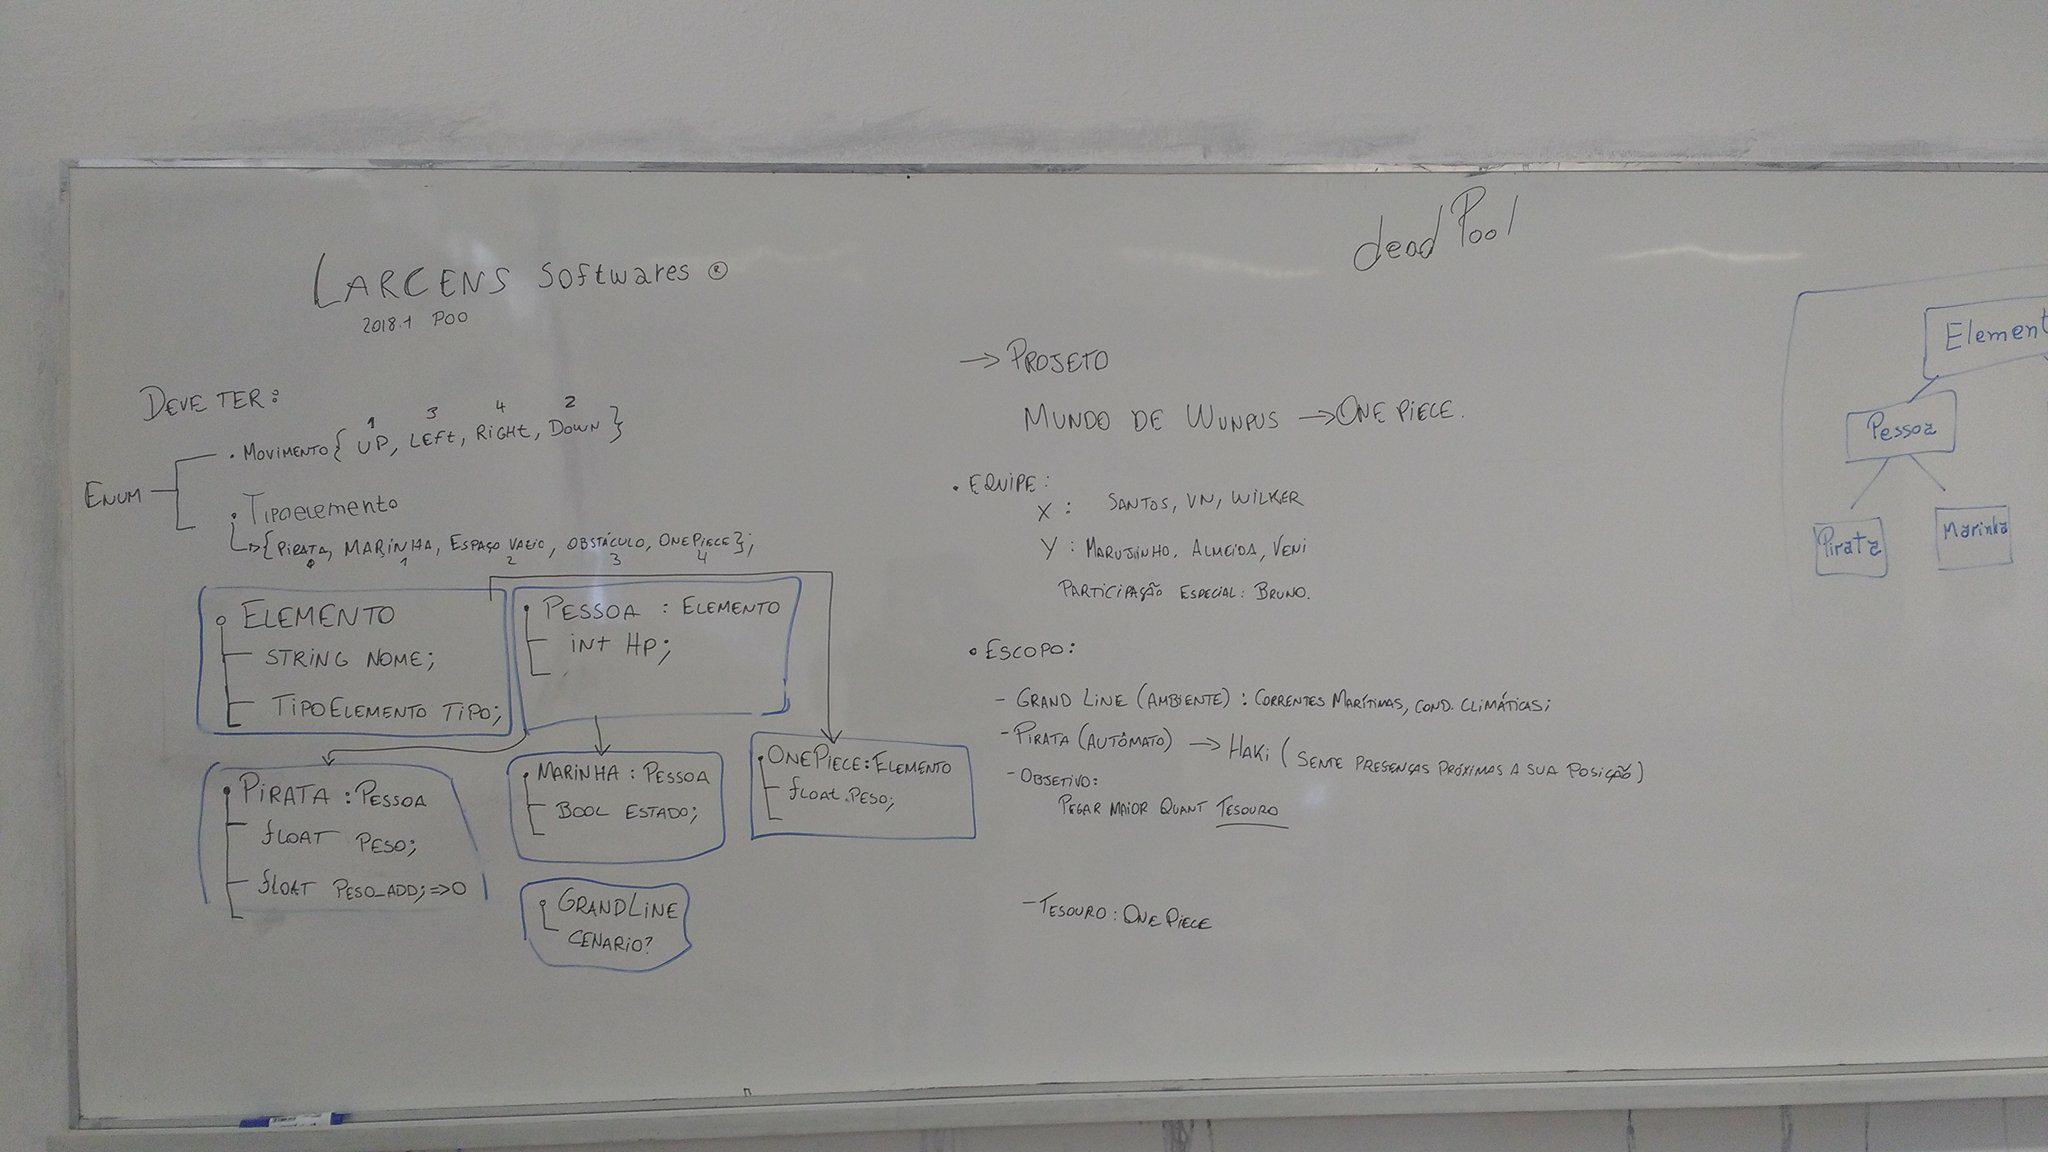 LARCENS Softwares ®
2018.1 POO
DEVE TER:
1 3 4 2
ENUM
• MOVIMENTO { UP, LEFt, RiGHt, DOWN }
• TiPOelemento
{PIRATA, MARINHA, ESPAÇO VAZIO, OBSTÁCULO, ONEPIECE};
0 1 2 3 4
ELEMENTO
STRING NOME;
TIPOELEMENTO TIPO;
PESSOA : ELEMENTO
INT HP;
PIRATA : PESSOA
FLOAT PESO;
FLOAT PESO_ADD; => 0
MARINHA : PESSOA
BOOL ESTADO;
ONEPIECE: ELEMENTO
float PESO;
GRANDLINE
CENARIO?
deadPool
→ PROJETO
MUNDO DE WUNPUS → ONE PIECE.
• EQUIPE:
X : SANTOS, VN, WILKER
Y : MARUJINHO, ALMEIDA, VENI
PARTICIPAÇÃO ESPECIAL: BRUNO.
• ESCOPO:
- GRAND LINE (AMBIENTE) : CORRENTES MARÍTIMAS, COND. CLIMÁTICAS;
- PIRATA (AUTÔMATO) → HAKI ( SENTE PRESENÇAS PRÓXIMAS A SUA POSIÇÃO)
- OBJETIVO:
PEGAR MAIOR QUANT TESOURO
- TESOURO : ONE PIECE
Element
Pessoa
Pirata
Marinha